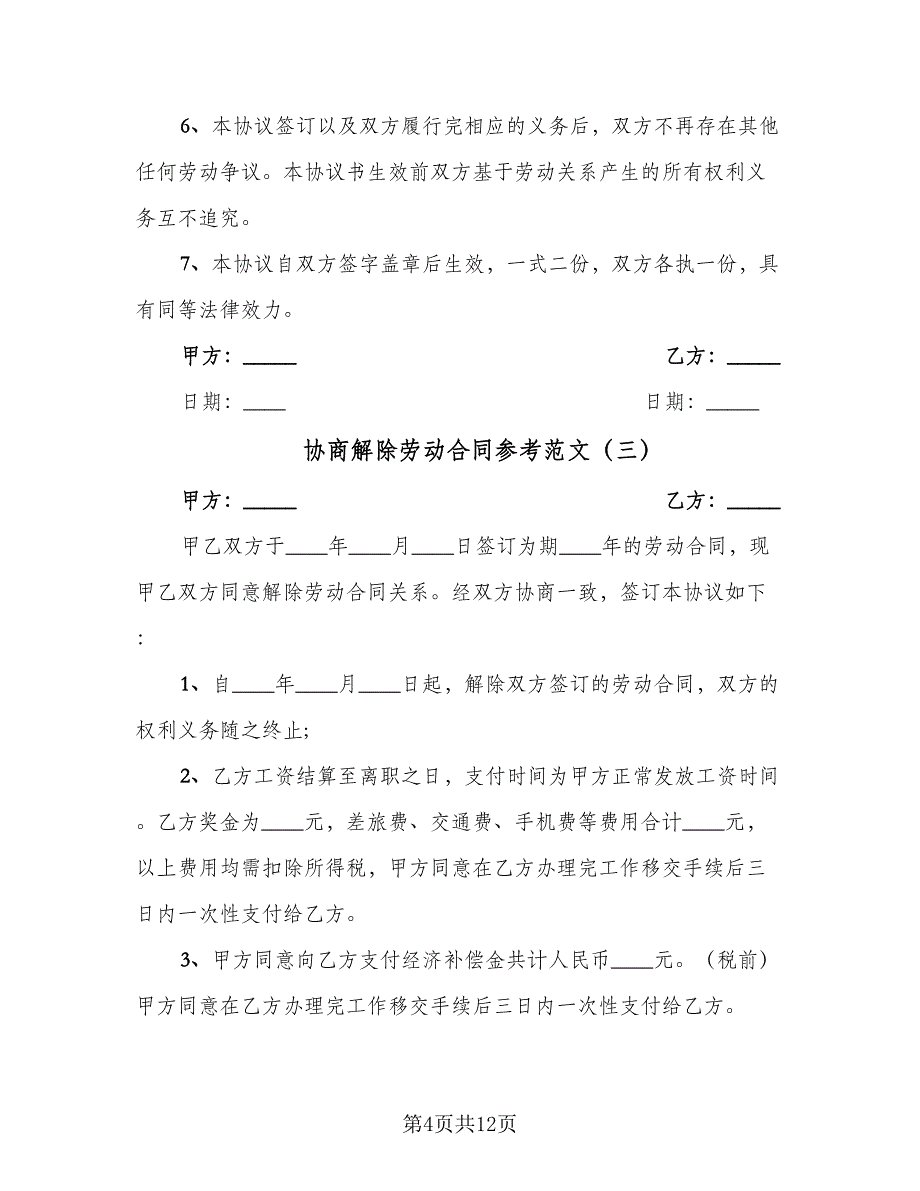 6、本协议签订以及双方履行完相应的义务后，双方不再存在其他
任何劳动争议。本协议书生效前双方基于劳动关系产生的所有权利义
务互不追究。
7、本协议自双方签字盖章后生效，一式二份，双方各执一份，具
有同等法律效力。
甲方：_____ 乙方：_____
日期：____ 日期：_____
协商解除劳动合同参考范文（三）
甲方：_____ 乙方：_____
甲乙双方于____年____月____日签订为期____年的劳动合同，现
甲乙双方同意解除劳动合同关系。经双方协商一致，签订本协议如下
：
1、自____年____月____日起，解除双方签订的劳动合同，双方的
权利义务随之终止;
2、乙方工资结算至离职之日，支付时间为甲方正常发放工资时间
。乙方奖金为____元，差旅费、交通费、手机费等费用合计____元，
以上费用均需扣除所得税，甲方同意在乙方办理完工作移交手续后三
日内一次性支付给乙方。
3、甲方同意向乙方支付经济补偿金共计人民币____元。（税前）
甲方同意在乙方办理完工作移交手续后三日内一次性支付给乙方。
第4页共12页